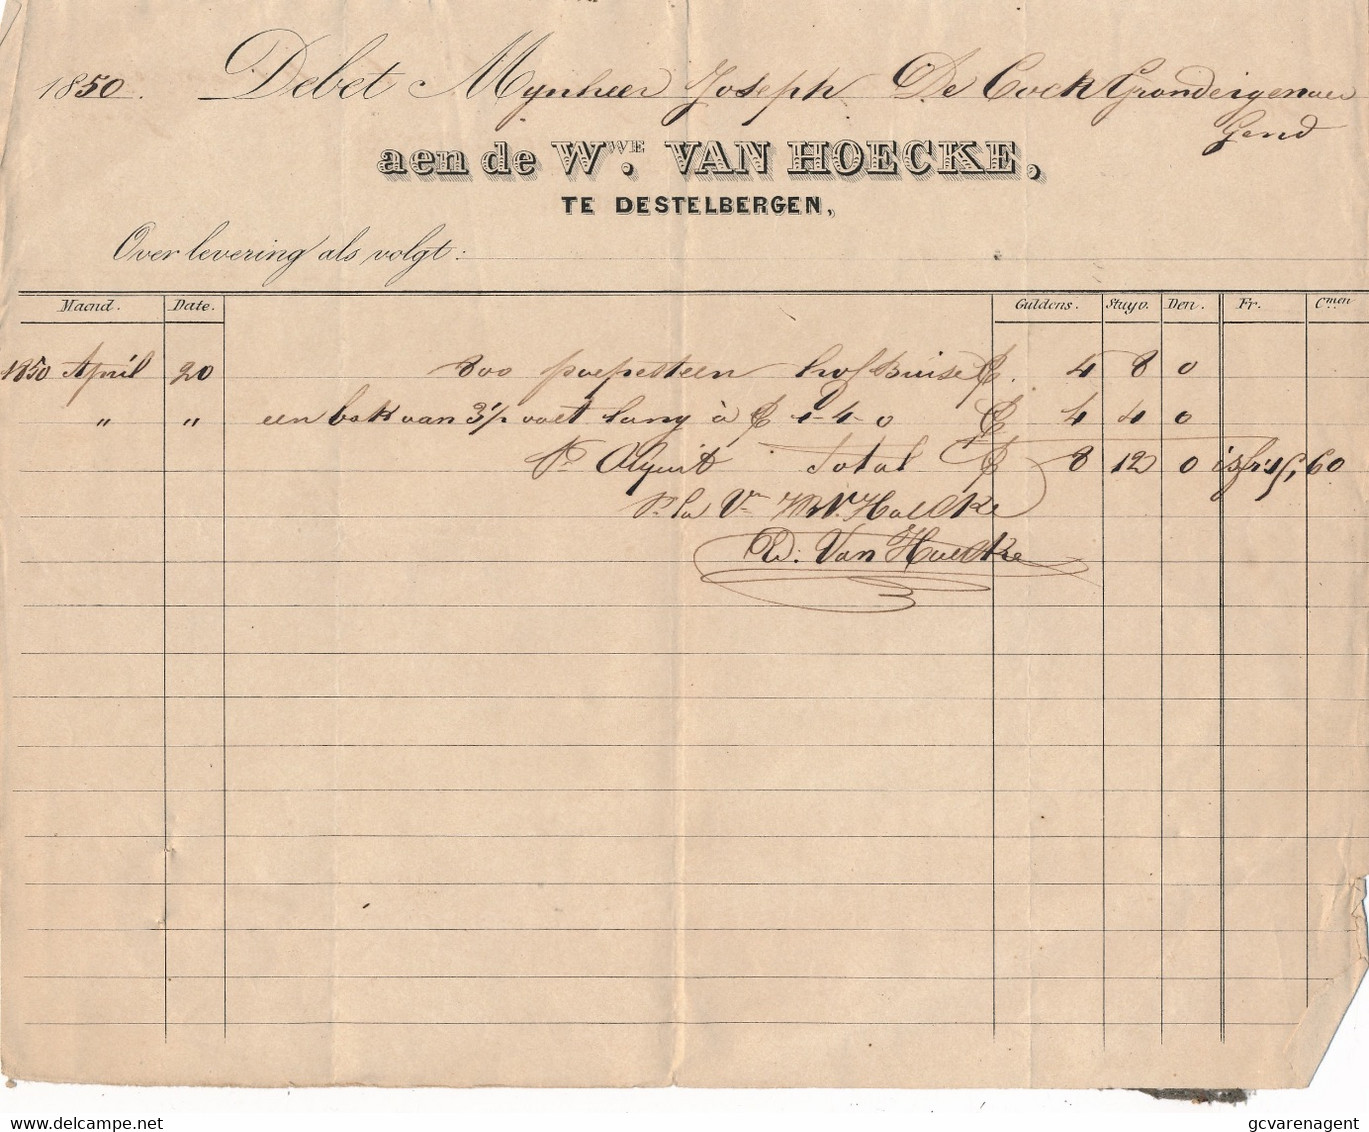 1850. Debet Mynheer Joseph De Cock Grondeigenaer
Gend
aen de Wwe. VAN HOECKE,
TE DESTELBERGEN,
Over levering als volgt:
Maend. Date. Guldens. Stuyv. Den. Fr. Cmen
1850 April 20 800 poepesteen 4 8 0
" " een bak van 3 1/2 voet lang à 1-4-0 4 4 0
Pr Acquit Total 8 12 0 is fr 15,60
Pr la Ve Van Hoecke
D: Van Hoecke
gcvarenagent